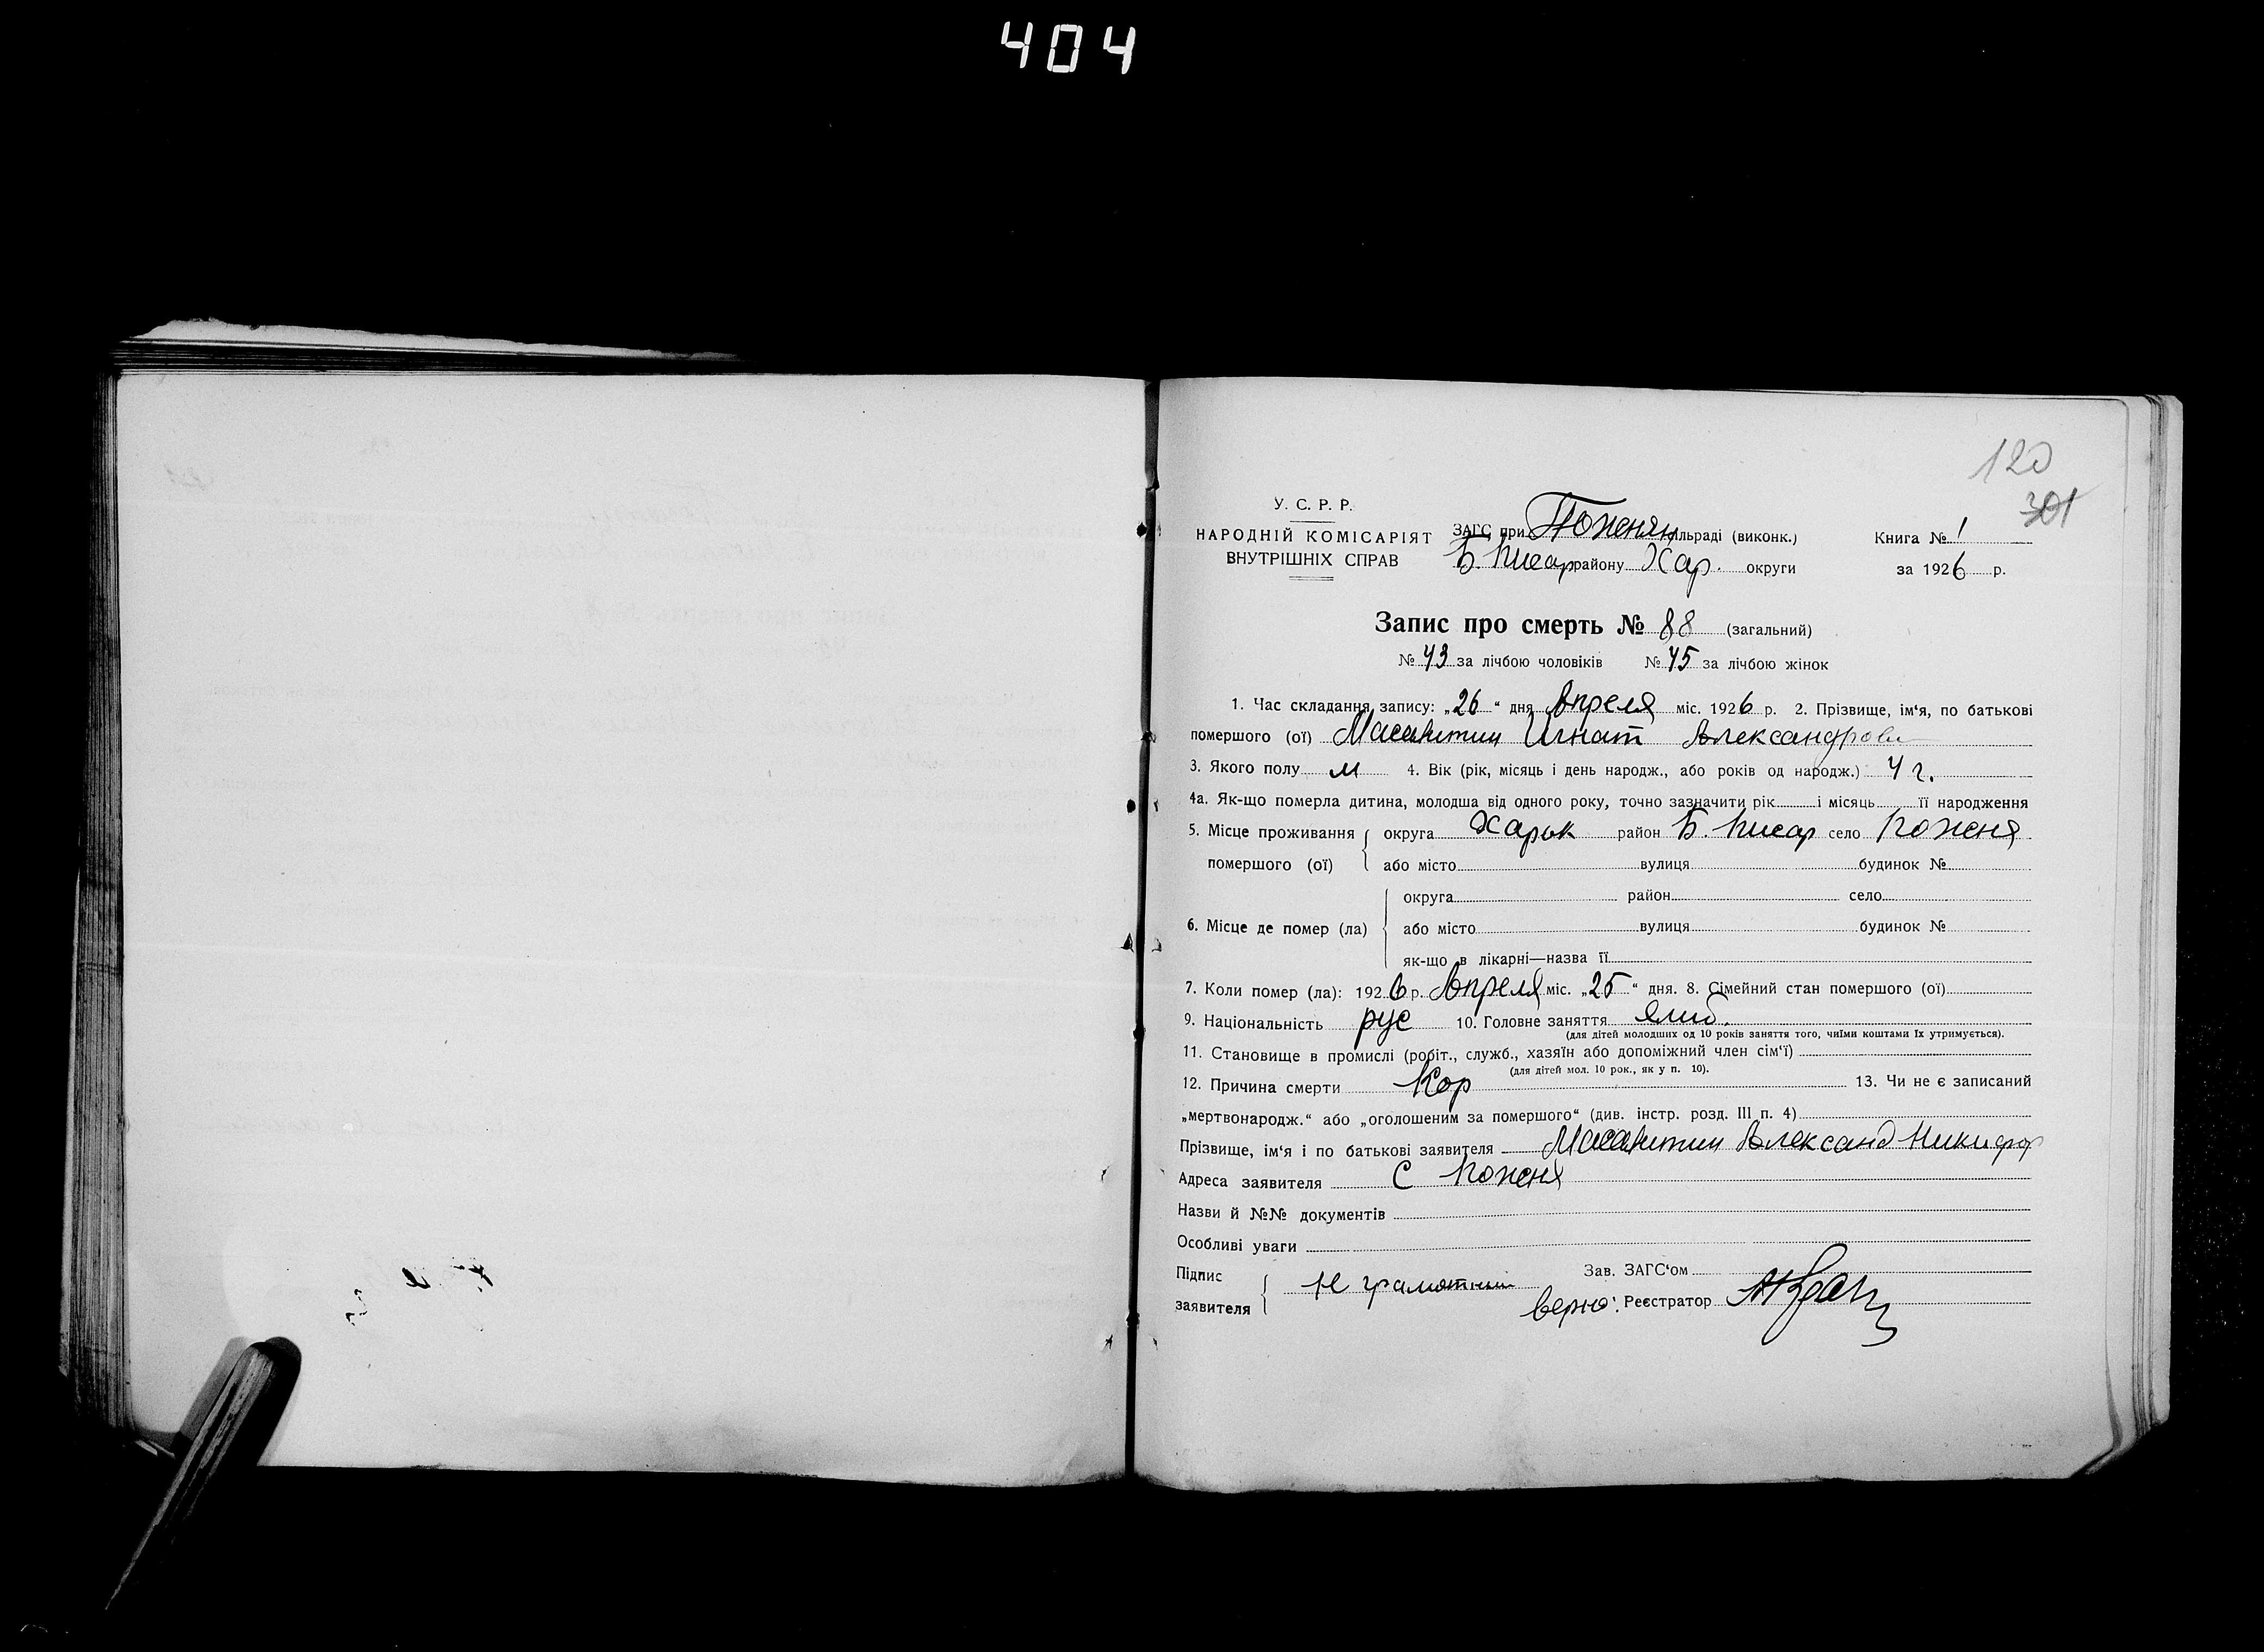 404
120
301
У. С. Р. Р.
НАРОДНІЙ КОМІСАРІЯТ
ВНУТРІШНІХ СПРАВ
ЗАГС при Поженян ільраді (виконк.)
Б. Писар району Хар. округи
Книга № 1
за 1926 р.
Запис про смерть № 88 (загальний)
№ 43 за лічбою чоловіків № 45 за лічбою жінок
1. Час складання запису: „26“ дня Апреля міс. 1926 р. 2. Прізвище, ім‘я, по батькові
помершого (ої) Игнат Александров
3. Якого полу м 4. Вік (рік, місяць і день народж., або років од народж.) 4 г.
4а. Як-що померла дитина, молодша від одного року, точно зазначити рік і місяць її народження
5. Місце проживання помершого (ої) округа Харьк район Б. Писар село Поженя
або місто вулиця будинок №
6. Місце де помер (ла) округа район село
або місто вулиця будинок №
як-що в лікарні—назва її
7. Коли помер (ла): 1926 р. Апреля міс. „25“ дня. 8. Сімейний стан помершого (ої)
9. Національність рус 10. Головне заняття
(для дітей молодших од 10 років заняття того, чиїми коштами їх утримується).
11. Становище в промислі (робіт., служб., хазяїн або допоміжний член сім‘ї)
(для дітей мол. 10 рок., як у п. 10).
12. Причина смерти Кор 13. Чи не є записаний
„мертвонародж.“ або „оголошеним за помершого“ (див. інстр. розд. III п. 4)
Прізвище, ім‘я і по батькові заявителя Александ Никифор
Адреса заявителя С Поженя
Назви й №№ документів
Особливі уваги
Підпис заявителя Не грамотний
Зав. ЗАГС‘ом
верно: Реєстратор